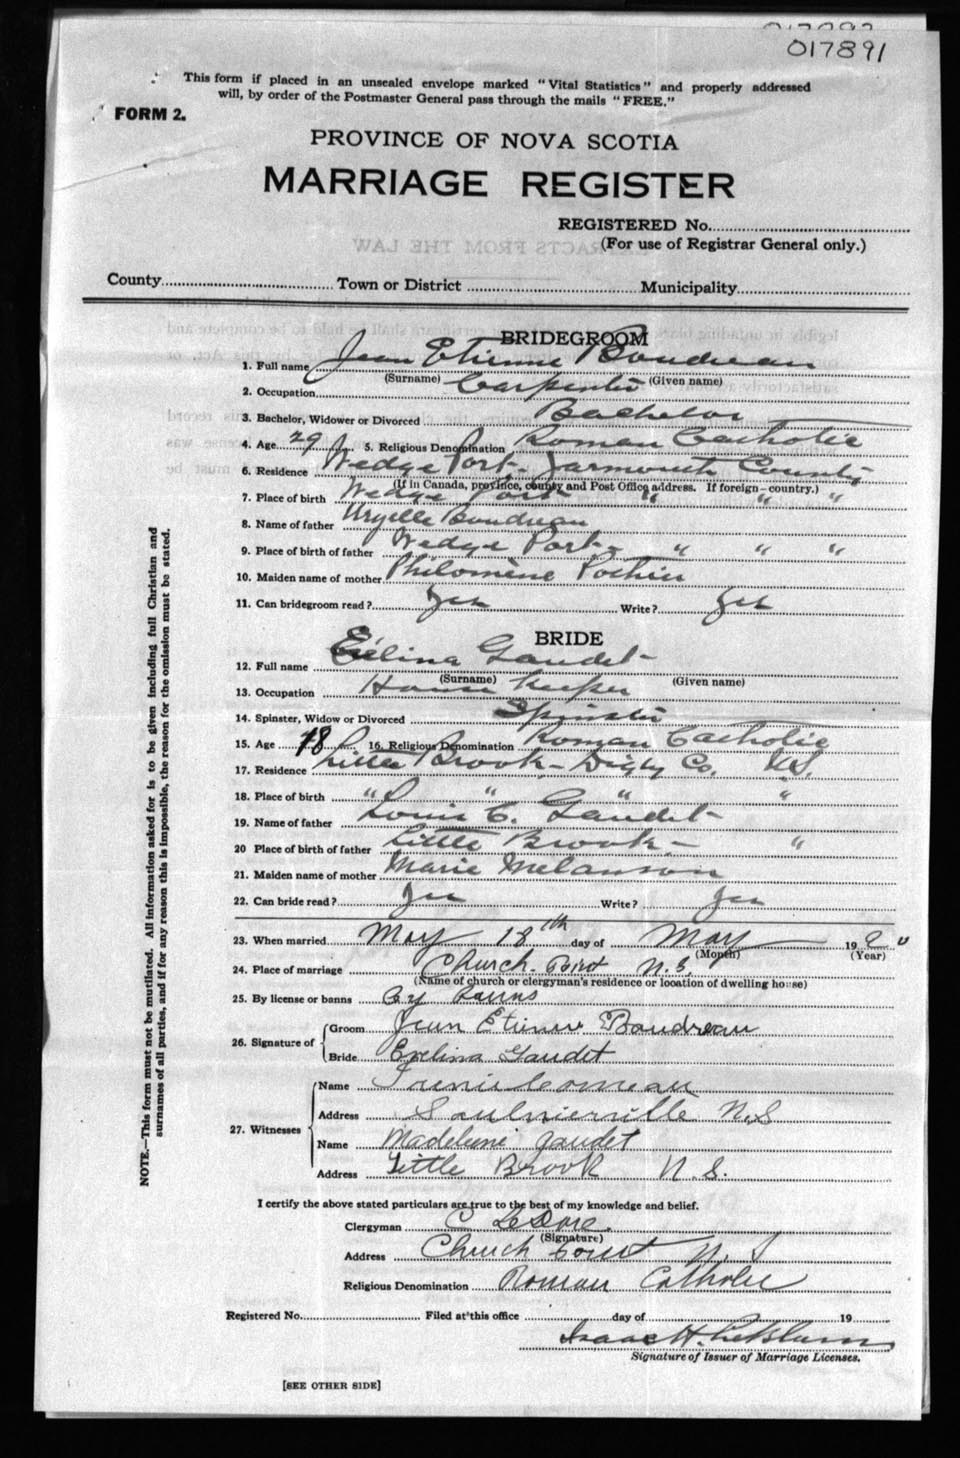 017892
017891
This form if placed in an unsealed envelope marked "Vital Statistics" and properly addressed
will, by order of the Postmaster General pass through the mails "FREE."
FORM 2.
PROVINCE OF NOVA SCOTIA
MARRIAGE REGISTER
REGISTERED No.
(For use of Registrar General only.)
County Town or District Municipality
BRIDEGROOM
1. Full name Jean Etienne Boudreau
(Surname) (Given name)
2. Occupation Carpenter
3. Bachelor, Widower or Divorced Bachelor
4. Age 29 5. Religious Denomination Roman Catholic
6. Residence Wedge Port- Yarmouth County
(If in Canada, province, county and Post Office address. If foreign-country.)
7. Place of birth Wedge Port " " "
8. Name of father Boudreau
9. Place of birth of father Wedge Port- " " "
10. Maiden name of mother Philomène Pothier
11. Can bridegroom read? Yes Write? Yes
BRIDE
12. Full name Evelina Gaudet-
(Surname) (Given name)
13. Occupation House Keeper
14. Spinster, Widow or Divorced Spinster
15. Age 18 16. Religious Denomination Roman Catholic
17. Residence Little Brook- Digby Co. N.S.
18. Place of birth " " " "
19. Name of father Louis C. Gaudet-
20 Place of birth of father Little Brook- "
21. Maiden name of mother Marie Melanson
22. Can bride read? Yes Write? Yes
23. When married May 18th day of May 19
(Month) (Year)
24. Place of marriage Church Point N.S.
(Name of church or clergyman's residence or location of dwelling house)
25. By license or banns By banns
26. Signature of Groom Jean Etienne Boudreau
Bride Evelina Gaudet
27. Witnesses
Name Comeau
Address Saulnierville N.S
Name Madeleine Gaudet
Address Little Brook N.S.
I certify the above stated particulars are true to the best of my knowledge and belief.
Clergyman C LeDoré.
(Signature)
Address Church Point N.S
Religious Denomination Roman Catholic
Registered No. Filed at this office day of 19
Isaac H.
Signature of Issuer of Marriage Licenses.
[SEE OTHER SIDE]
NOTE.—This form must not be mutilated. All information asked for is to be given including full Christian and
surnames of all parties, and if for any reason this is impossible, the reason for the omission must be stated.